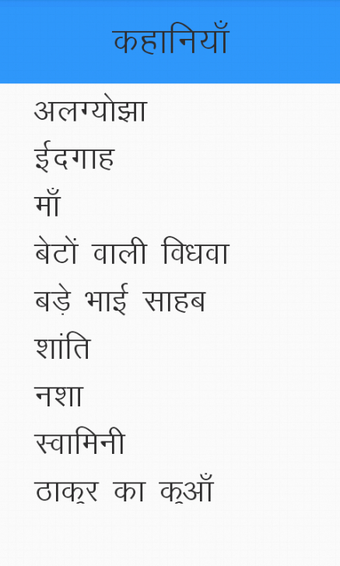 कहानियाँ
अलग्योझा
ईदगाह
माँ
बेटों वाली विधवा
बड़े भाई साहब
शांति
नशा
स्वामिनी
ठाकुर का कुआँ